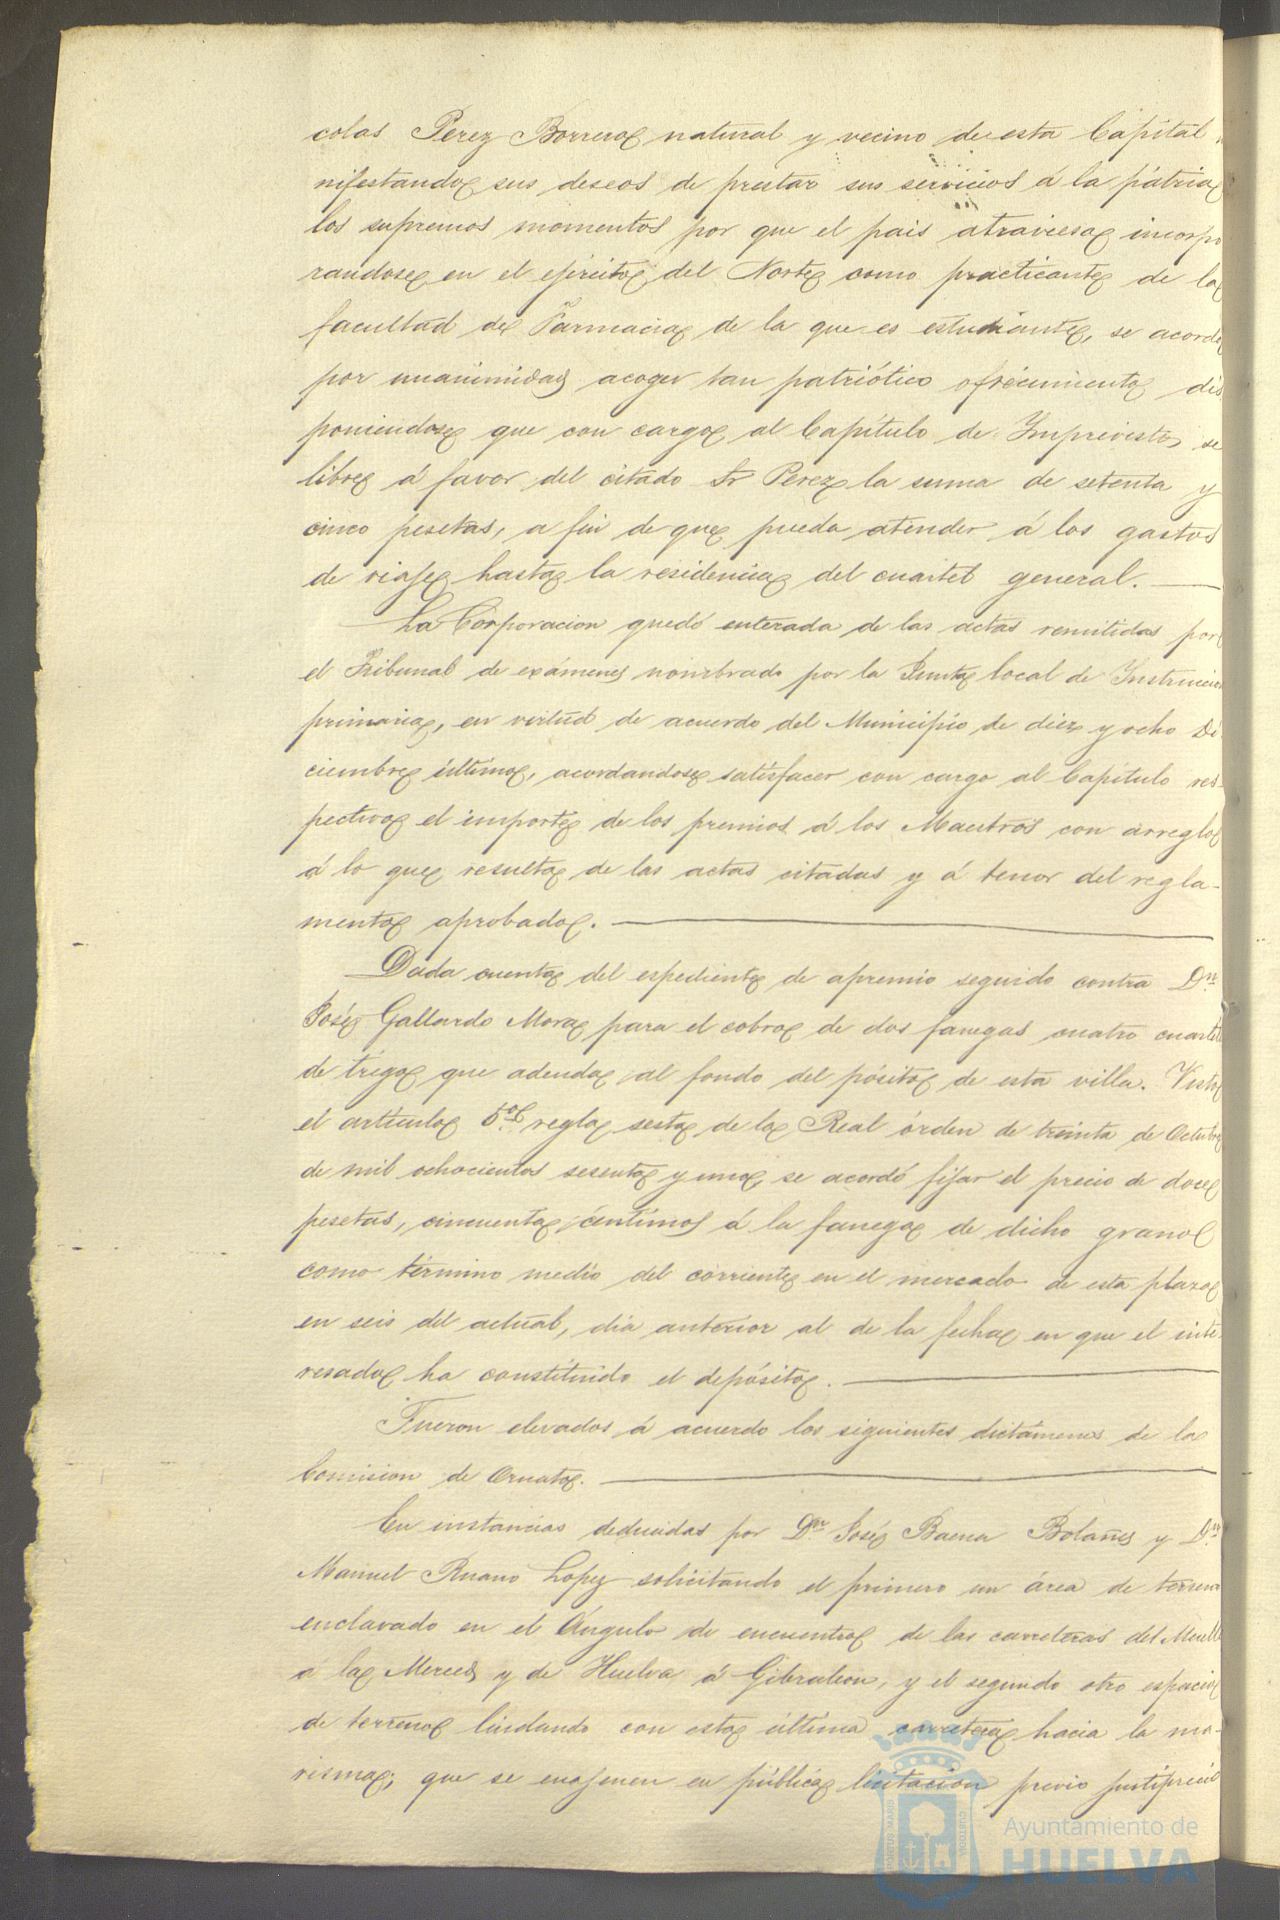 colas Perez Borrero natural y vecino de esta Capital
nifestando sus deseos de prestar sus servicios á la pátria
los supremos momentos por que el pais atraviesa incorpo
randose en el ejército del Norte como practicante de la
facultad de Farmacia de la que es estudiante, se acordó
por unanimidad acoger tan patriótico ofrecimiento dis
poniendose que con cargo al Capítulo de Imprevistos se
libre á favor del citado Sr Perez la suma de setenta y
cinco pesetas, a fin de que pueda atender á los gastos
de viaje hasta la residencia del cuartel general.
La Corporacion quedó enterada de las actas remitidas por
el Tribunal de exámenes nombrado por la Junta local de Instruccion
primaria, en virtud de acuerdo del Municipio de diez y ocho Di
ciembre último, acordandose satisfacer con cargo al Capítulo res-
pectivo el importe de los premios á los Maestros con arreglo
á lo que resulta de las actas citadas y á tenor del regla-
mento aprobado.
Dada cuenta del espediente de apremio seguido contra Dn
José Gallardo Mora para el cobro de dos fanegas cuatro cuartill
de trigo que adenda al fondo del pósito de esta villa. Visto
el artículo 5º regla sesta de la Real órden de treinta de Octubre
de mil ochocientos sesenta y uno, se acordó fijar el precio de doce
pesetas, cincuenta céntimos á la fanega de dicho grano
como término medio del corriente en el mercado de esta plaza
en seis del actual, dia anterior al de la fecha en que el inte
resado ha constituido el depósito.
Fueron elevados á acuerdo los siguientes dictámenes de la
Comision de Ornato.
En instancias deducidas por Dn José Baena Bolaños y Dn
Manuel Ruano Lopez solicitando el primero un área de terreno
enclavado en el Ángulo de encuentro de las carreteras del Muelle
á la Merced y de Huelva á Gibraleon, y el segundo otro espacio
de terreno lindando con esta última carretera hacia la ma-
risma; que se enajenen en pública licitacion previo justiprecio
Ayuntamiento de
HUELVA